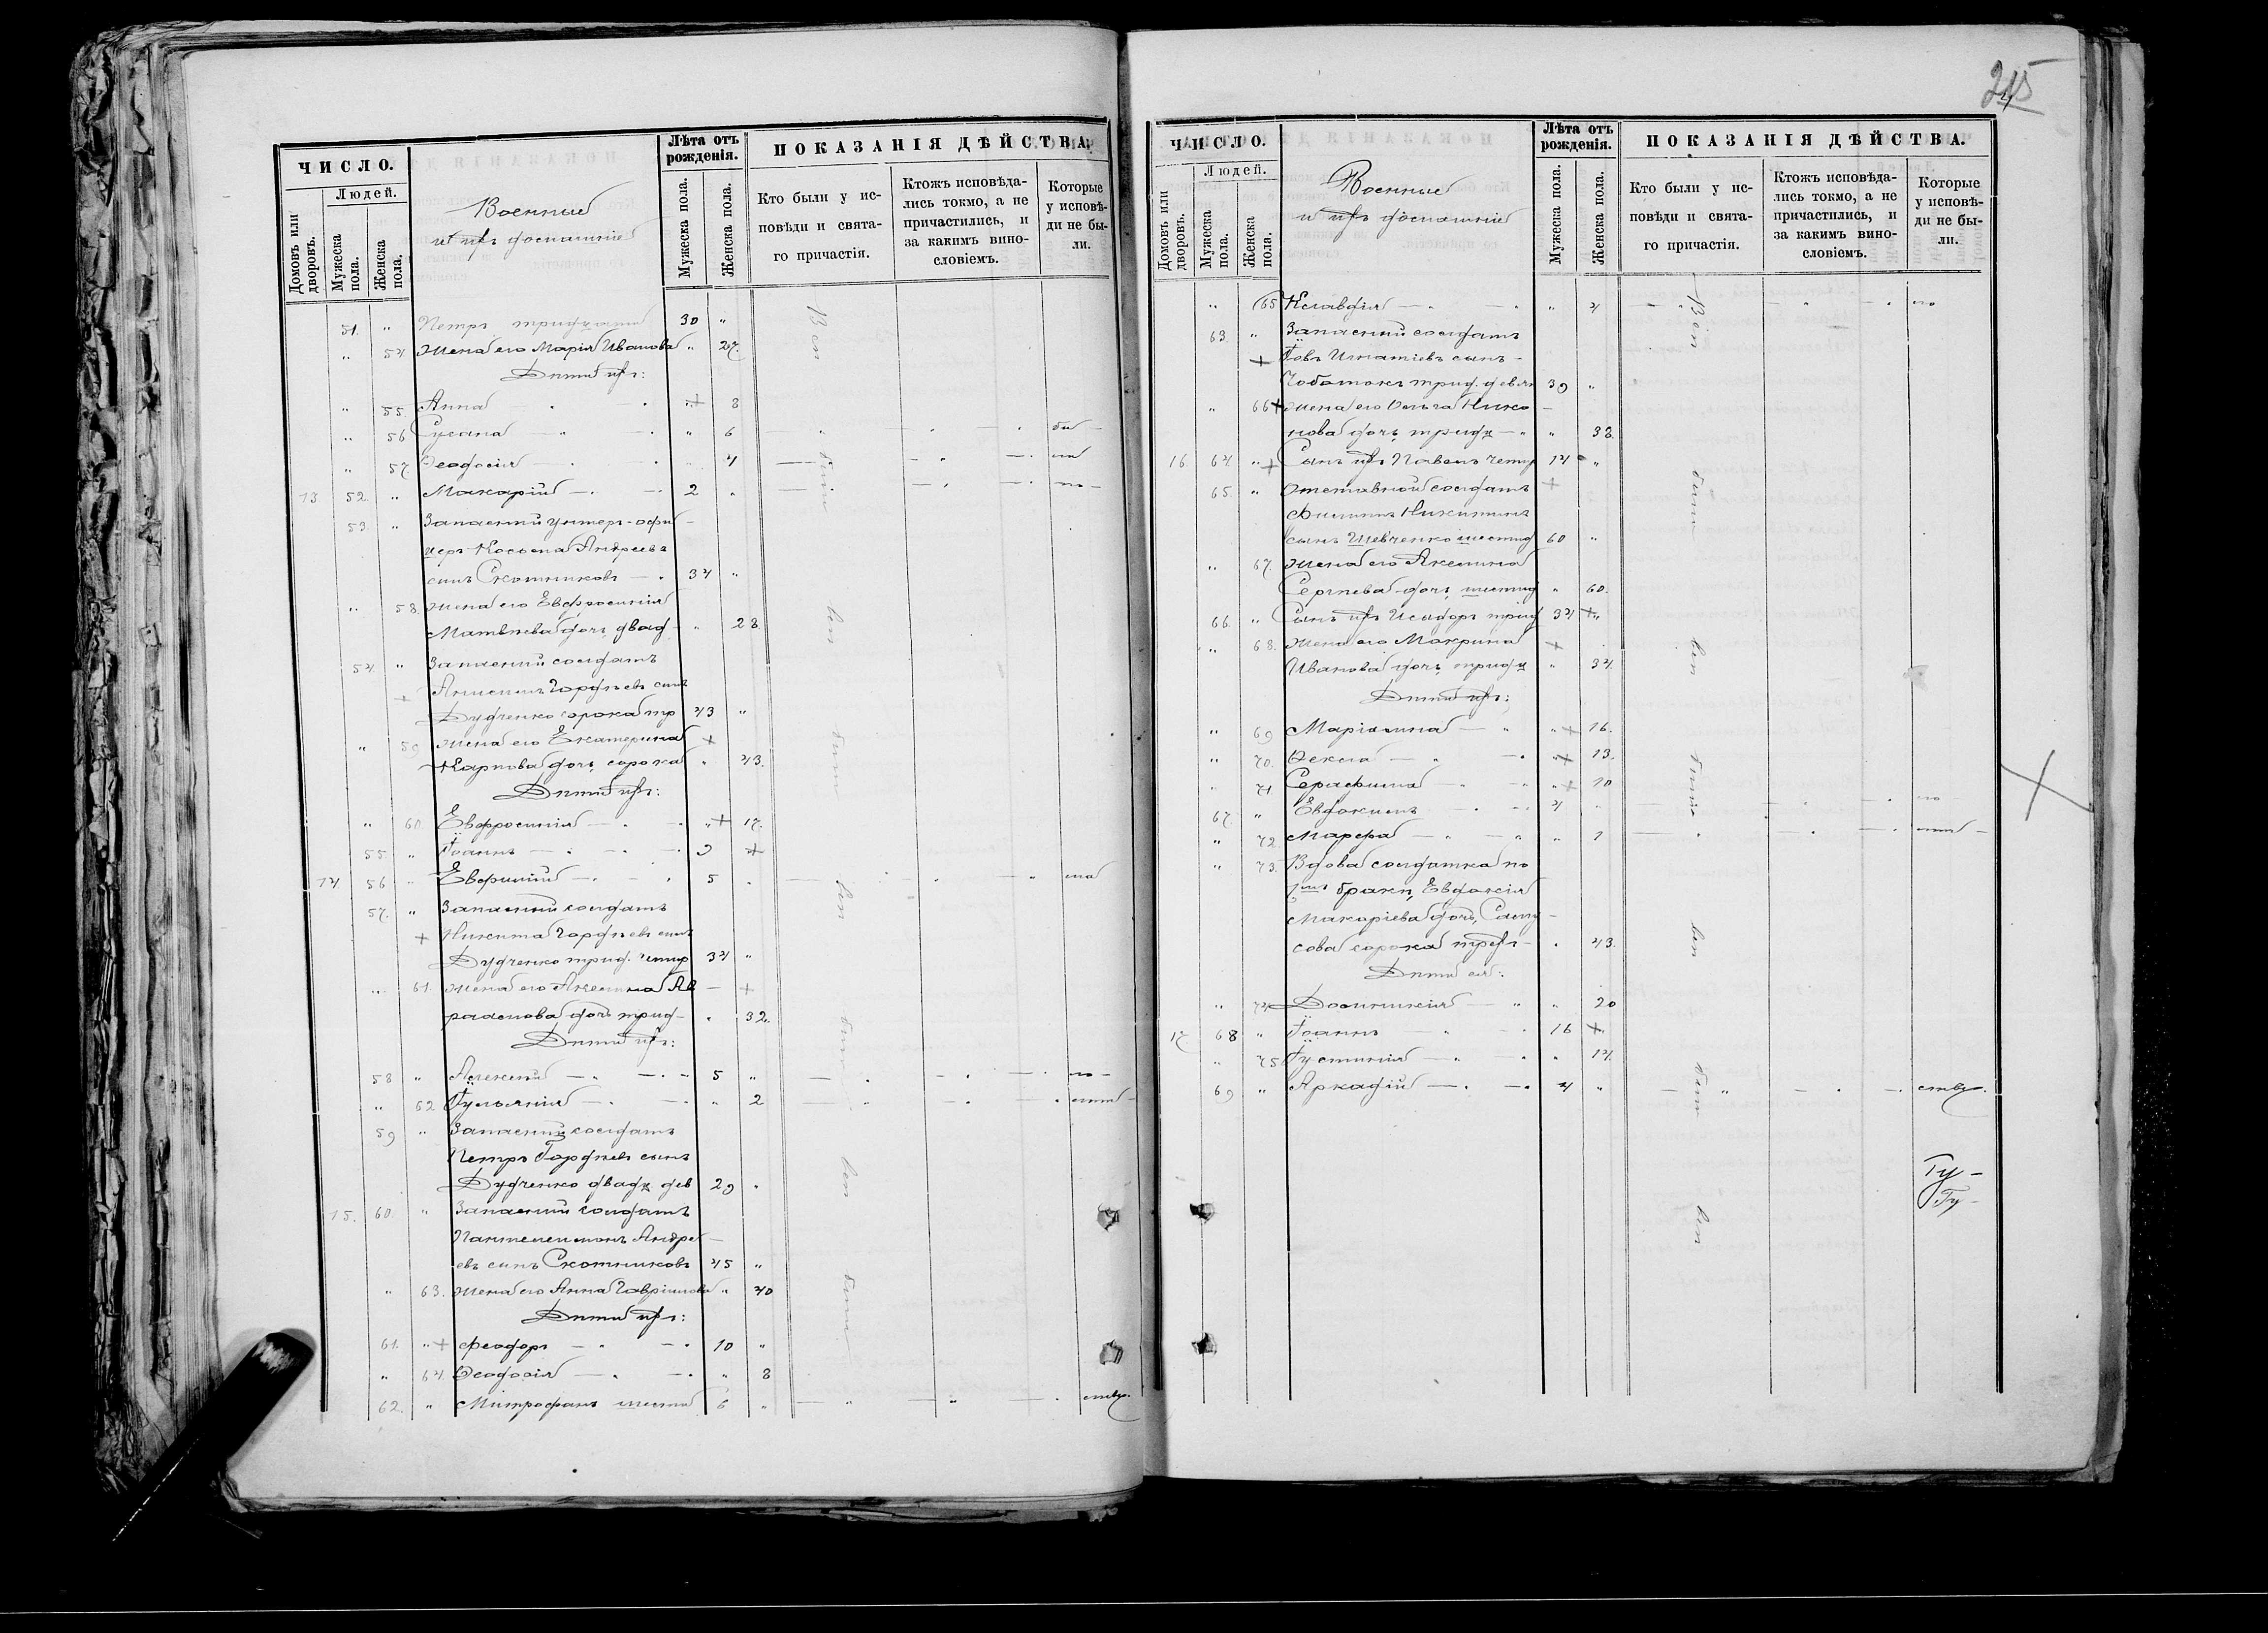 215
ЧИСЛО.
Людей.
Домовъ или дворовъ.
Мужеска пола.
Женска пола.
Военные
и ихъ домашніе
Лѣта отъ рожденія.
Мужеска пола.
Женска пола.
ПОКАЗАНІЯ ДѢЙСТВА.
Кто были у исповѣди и святаго причастія.
Ктожъ исповѣдались токмо, а не причастились, и за какимъ винословіемъ.
Которые у исповѣди не были.
51. " Петръ тридцати 30 "
" 54 Жена его Марія Иванова " 27.
Дѣти ихъ:
" 55 Анна " + 8
" 56 Сусана " 6
" 57 Ѳеодосія " 4
13 52 " Макарій 2 "
53 " Запасный унтеръ-офи
церъ Косьма Андреевъ
сынъ Скотниковъ 34 "
" 58. Жена его Евфросинія
Матвѣева дочь двад " 28
54. " Запасный солдатъ
+ Анисимъ Гордѣевъ сынъ
Дудченко сорока тр 43 "
" 59 Жена его Екатерина +
Карпова дочь сорока " 43.
Дѣти ихъ:
" 60 Евфросинія " + 17.
55. " Іоаннъ 9 +
14 56 " Евфимій 5 "
57. " Запасный солдатъ
+ Никита Гордѣевъ сынъ
Дудченко трид. четыр 34 "
" 61. Жена его Акелина Ав +
дочь трид " 32.
Дѣти ихъ:
58 " Алексій 5 "
" 62 Іульянія " 2
59 " Запасный солдатъ
Петръ Гордѣевъ сынъ
Дудченко двадц дев 29 "
15. 60. " Запасный солдатъ
Пантелеимонъ Андре
евъ сынъ Скотниковъ 45 "
" 63. Жена его Анна Гавріилова " 40
Дѣти ихъ:
61. " + Феодоръ 10 "
" 64. Ѳеодосія " 8
62. " Митрофанъ шести 6 "
ЧИСЛО.
Людей.
Домовъ или дворовъ.
Мужеска пола.
Женска пола.
Военные
и ихъ домашніе
Лѣта отъ рожденія.
Мужеска пола.
Женска пола.
ПОКАЗАНІЯ ДѢЙСТВА.
Кто были у исповѣди и святаго причастія.
Ктожъ исповѣдались токмо, а не причастились, и за какимъ винословіемъ.
Которые у исповѣди не были.
" 65 Клавдія " 4
63. " Запасный солдатъ
+ Іовъ Игнатіевъ сынъ
Чоботокъ трид. девян 39 "
" 66 + Жена его Ольга Нико
нова дочь тридц " 38.
16. 64. " + Сынъ ихъ Павелъ четыр 14 "
65. " Отставной солдатъ +
Филиппъ Никитинъ
сынъ Шевченко шестид 60 "
" 67. Жена его Акелина
Сергѣева дочь шестид " 60.
66. " Сынъ ихъ Исидоръ трид 34 +
" 68. Жена его Макрина +
Иванова дочь тридц " 34.
Дѣти ихъ:
" 69 Маріамна " + 16.
" 70. Ѳекла " + 13.
" 71 Серафима " + 10
67. " Евдокимъ 4 "
" 72 Марфа " 1
" 73. Вдова солдатка по
1му бракѣ, Евдокія
Макаріева дочь, Саму
сова сорока трехъ " 43.
Дѣти ея:
" 74 Домникія " 20
17. 68 " Іоаннъ 16 +
" 75 Іустинія " 14.
69 " Аркадій 4 "